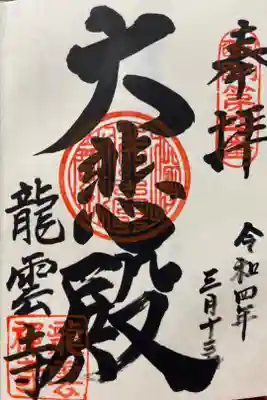 奉拝
令和四年
三月十三
大悲殿
龍雲寺